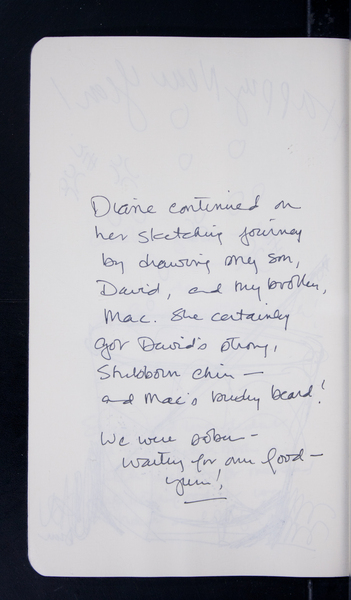 Happy New Year!
Diane continued on
her sketching journey
by drawing my son,
David, and my brother,
Mac. She certainly
got David's strong,
stubborn chin —
and Mac's bushy beard!
We were sober —
waiting for our food —
yum!